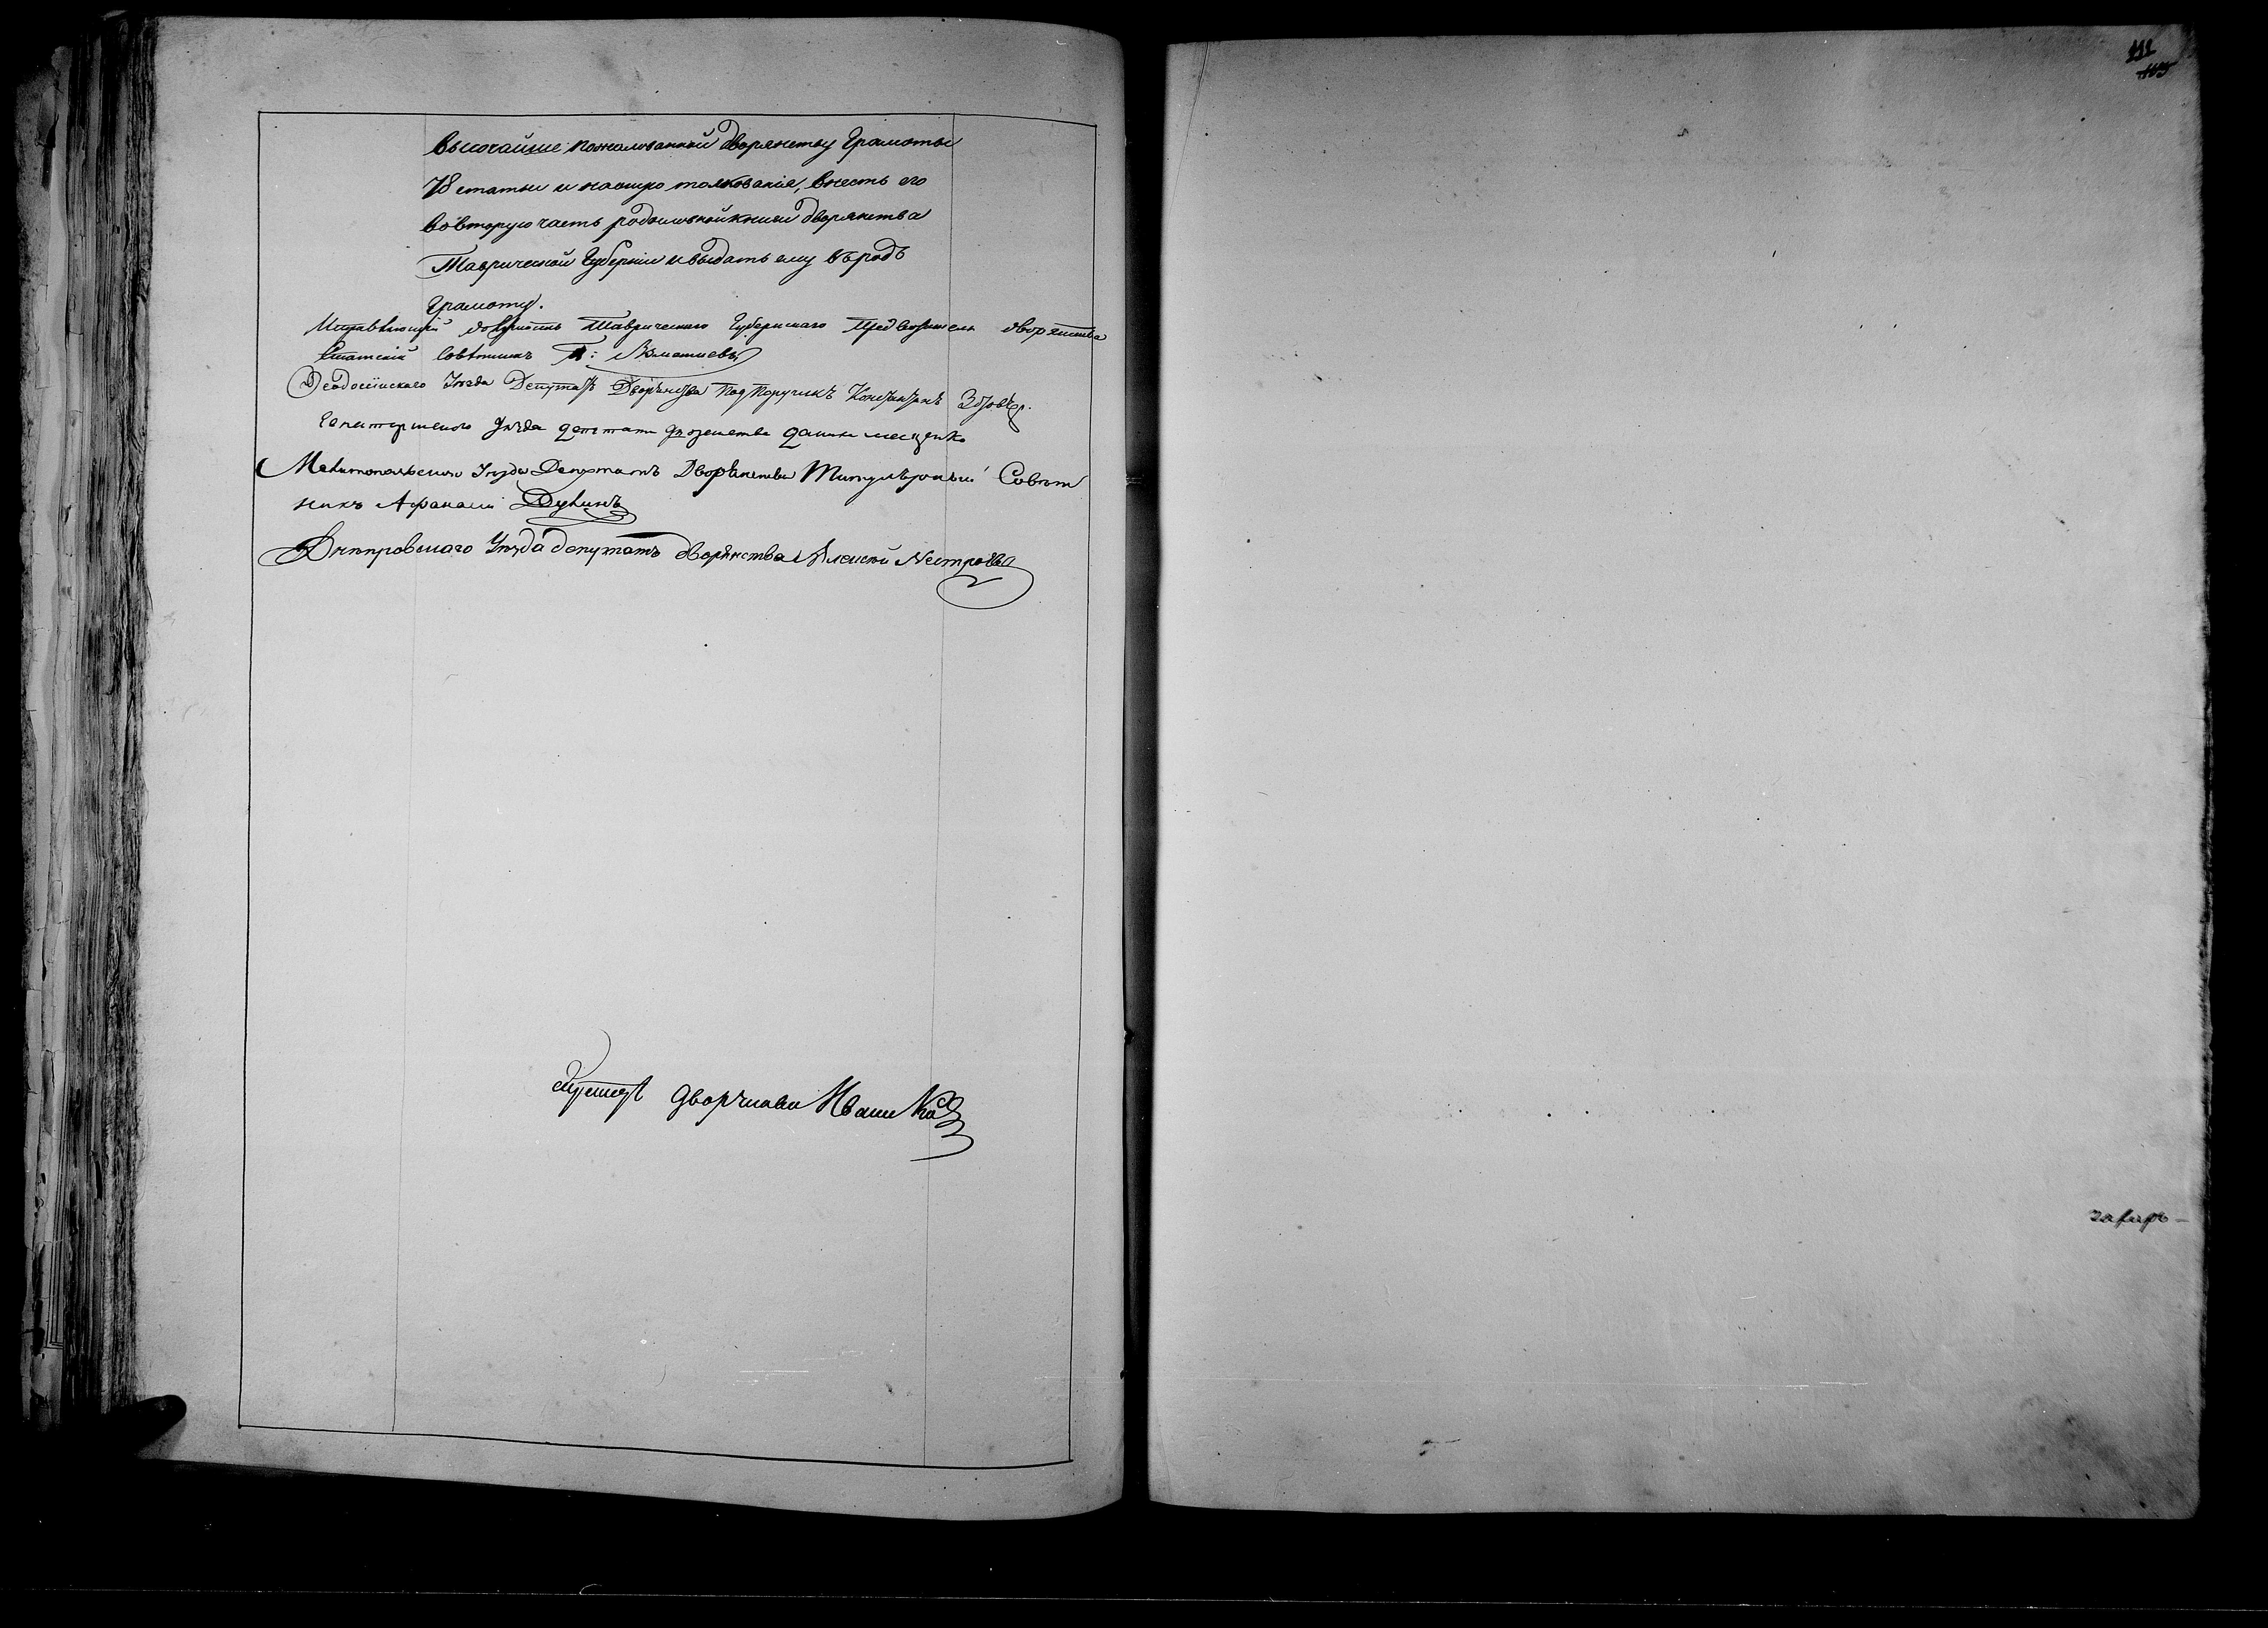 Высочайше пожалованной Дворянству Грамоты
78 статьи и наоную толкованіе, внесть его
во вторую часть родословной книги Дворянства
Таврической Губерніи и выдать ему въ родъ
Грамоту.
Исправляющій должность Таврическаго Губернскаго Предводителя дворянства
Статскій Совѣтникъ
Феодосійскаго Уѣзда Депутатъ Дворянства Подпоручикъ Константинъ
Уѣзда Депутатъ дворянства
Мелитопольскаго Уѣзда Депутатъ Дворянства Титулярный Совѣт
никъ Афанасій Дунинъ
Днепровскаго Уѣзда депутатъ дворянства Алексѣй
дворянства Иваненко
111
105